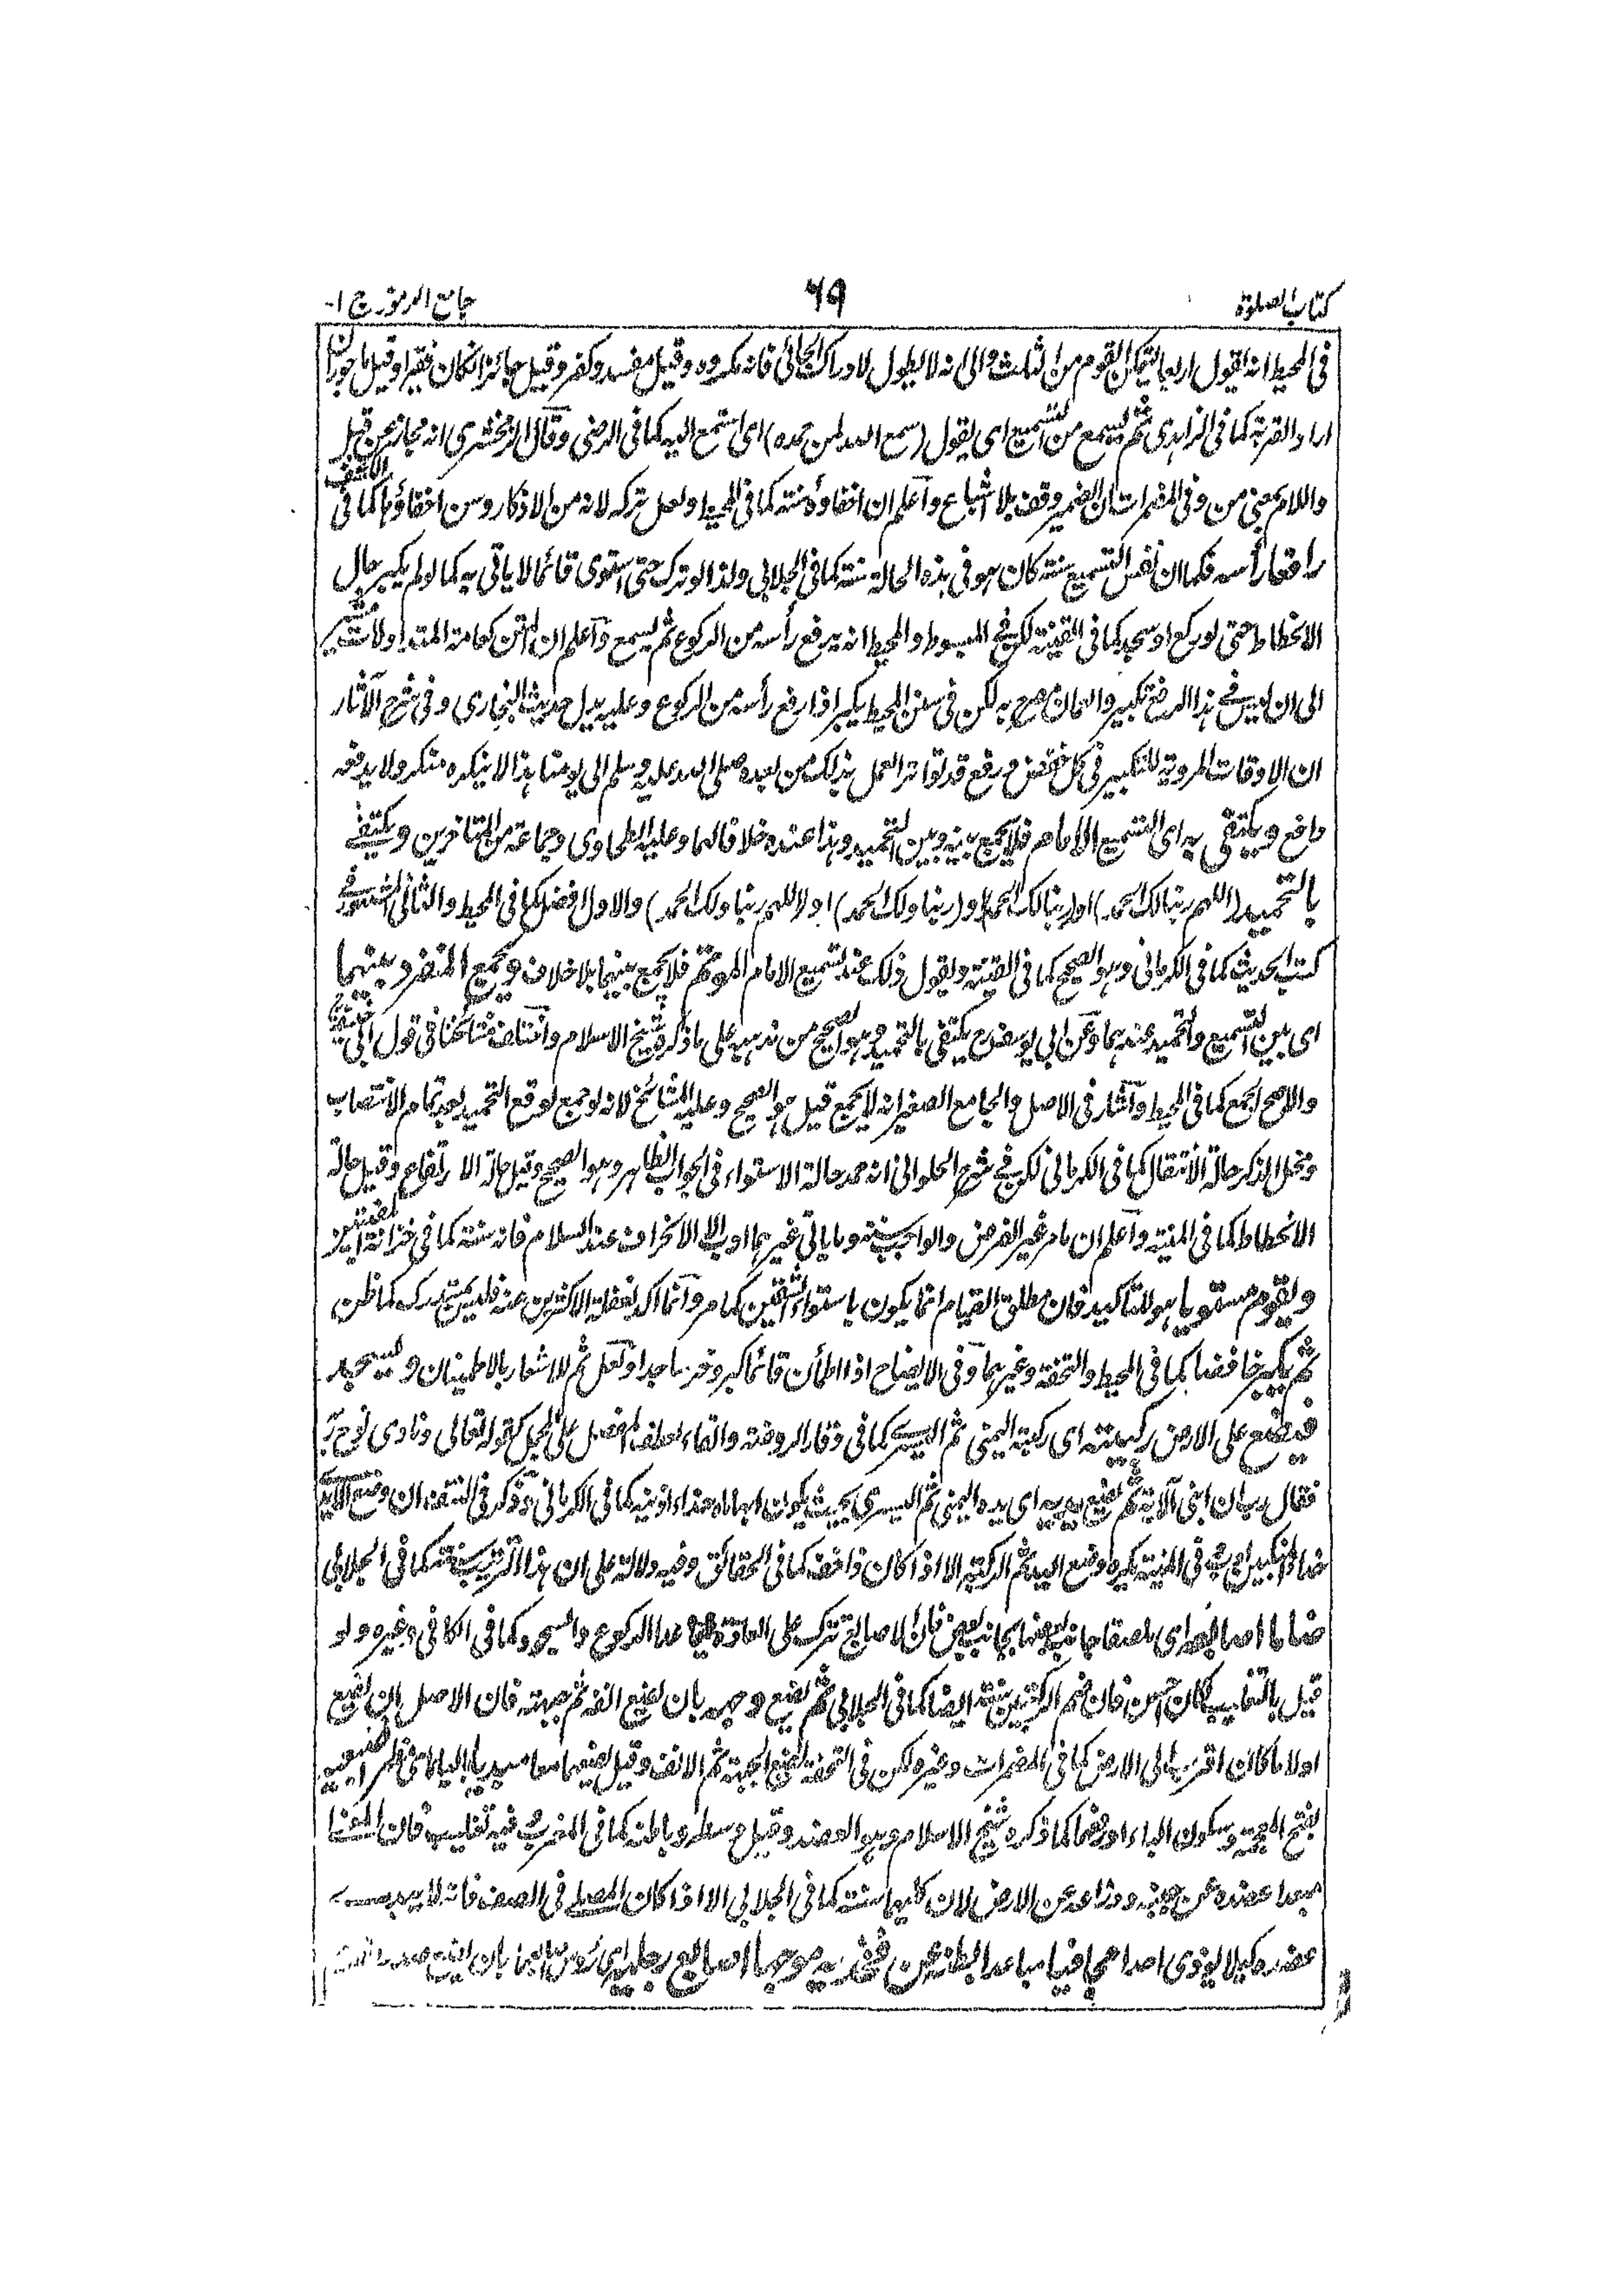 كتاب الصلوة ٦٩ جامع الرموز ج ١-
فى المحيط انه يقول اربعا ليتمكن القوم من الثلث والى انه لا يطول لادراك الجائى فانه مكروه وقيل مفسد وكفر وقيل جائز انكان فقيرا وقيل ماجور ان
اراد القربة كما فى الزاهدى ثم يسمع من التسميع اى يقول (سمع الله لمن حمده) اى استمع اليه كما فى الرضى وقال الزمخشرى انه مجاز عن قبل
واللام بمعنى من وفى المضمرات ان الضمير وقف بلا اشباع واعلم ان اخفاؤه سنة كما فى المحيط ولعل تركه لانه من الاذكار وسن اخفاؤها كما فى الكشف
رافعا رأسه فكما ان نفس التسميع سنة كان هو فى هذه الحالة سنة كما فى الجلابى ولذا لو ترك حتى استوى قائما لا ياتى به كما لو لم يكبر حال
الانحطاط حتى لو ركع او سجد كما فى القنية لكن فى المبسوط والمحيط انه يرفع رأسه من الركوع ثم يسمع واعلم ان المتن كعامة المتداولات مشير
الى ان ليس فى هذا الرفع تكبير والهمان صرح به لكن فى سنن المحيط يكبر اذا رفع رأسه من الركوع وعليه يدل حديث البخارى وفى شرح الآثار
ان الاوقات المروية للتكبير فى كل خفض ورفع قد تواتر العمل بذلك من بعده صلى الله عليه وسلم الى يومنا هذا لا ينكره منكر ولا يدفعه
دافع ويكتفى به اى التسميع الامام فلا يجمع بينه وبين التحميد وهذا عنده خلافا لهما وعليه الطحاوى وجماعة من المتاخرين ويكتفى
بالتحميد (اللهم ربنا لك الحمد) او (ربنا لك الحمد) او (ربنا ولك الحمد) او (اللهم ربنا ولك الحمد) والاول افضل كما فى المحيط والثانى المشهور فى
كتب الحديث كما فى الكرمانى وهو الصحيح كما فى القنية ويقول ذلك عند تسميع الامام المؤتم فلا يجمع بينهما بلا خلاف ويجمع المنفرد بينهما
اى بين التسميع والتحميد عندهما وعن ابى يوسف رح يكتفى بالتحميد وهو الصحيح من مذهبه على ما ذكره شيخ الاسلام واختلف مشائخنا فى قول ابى حنيفة
والاصح الجمع كما فى المحيط واشار فى الاصل والجامع الصغير انه لا يجمع قيل هو الصحيح وعليه المشائخ لانه لو جمع لوقع التحميد بعد تمام الانتصاب
ومحل الذكر حالة الانتقال كما فى الكرمانى لكن فى شرح الحلوانى انه حمد حالة الاستواء فى الجواب الظاهر وهو الصحيح وقيل حالة الارتفاع وقيل حالة
الانحطاط كما فى المنية واعلم ان ما مر غير الفرض والواجب سنة وما ياتى غيرهما ادب الا الانحراف عند السلام فانه سنة كما فى خزانة المفتين
ويقوم مستويا هو لتاكيد فان مطلق القيام انما يكون باستواء الشقين كما مر وانما اكد لغفلة الاكثرين عنه فليس بمستدرك كما ظن
ثم يكبر خافضا كما فى المحيط والتحفة وغيرهما وفى الايضاح اذا اطمأن قائما كبر وخر ساجدا ولعل ثم للاشعار بالاطمينان ويسجد
فيضع على الارض ركبتيه اى ركبته اليمنى ثم اليسرى كما فى وقار الروضة والفاء لعطف المفصل على المجمل كقوله تعالى ونادى نوح ربه
فقال رب ان ابنى الآية ثم يضع يديه اى يده اليمنى ثم اليسرى بحيث يكون ابهاماه حذاء اذنيه كما فى الكرمانى وذكر فى النتف ان وضع اليد
حذاء المنكبين ادب وفى المنية يكره وضع اليد ثم الركبة الا اذا كان ذا خف كما فى الحقائق وفيه دلالة على ان هذا الترتيب سنة كما فى الجلابى
ضاما اصابعه اى ملصقا جانب بعضها بجانب بعض فان الاصابع تترك على العادة فيما عدا الركوع والسجود كما فى الكافى وغيره ولو
قيل بالتغليب لكان احسن فان ضم الركبتين سنة ايضا كما فى الجلابى ثم يضع وجهه بان يضع انفه ثم جبهته فان الاصل ان يضع
اولا ما كان اقرب الى الارض كما فى المضمرات وغيره لكن فى التحفة يضع الجبهة ثم الانف وقيل يضعهما معا مبديا ضبعيه
بفتح المعجمة وسكون الباء او ضمها كما ذكره شيخ الاسلام وهو العضد وقيل وسطه وباطنه كما فى المغرب ففيه تغليب فان المعنى
مبعدا عضده عن جنبه وذراعه عن الارض لان كليهما سنة كما فى الجلابى الا اذا كان المصلى فى الصف فانه لا يبدى
عضده كيلا يوذى احدا مجافيا مباعدا بطنه عن فخذيه موجها اصابع رجليه اى رؤس اصابعها بان